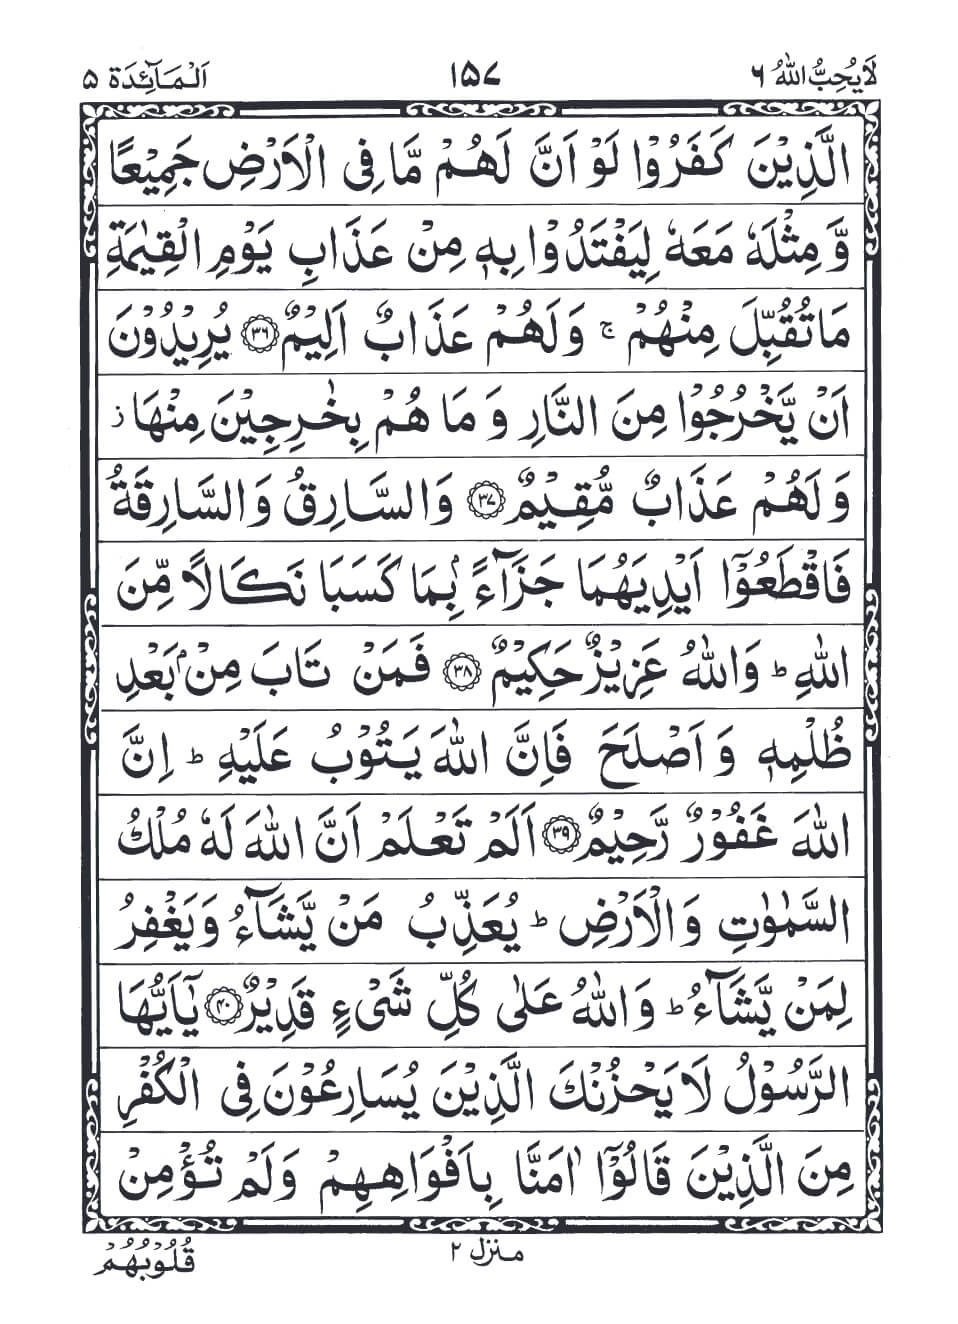 لَا يُحِبُّ اللّٰهُ ٦
١٥٧
اَلْمَآئِدَة ٥
الَّذِيْنَ كَفَرُوْا لَوْ اَنَّ لَهُمْ مَّا فِى الْاَرْضِ جَمِيْعًا
وَّ مِثْلَهٗ مَعَهٗ لِيَفْتَدُوْا بِهٖ مِنْ عَذَابِ يَوْمِ الْقِيٰمَةِ
مَا تُقُبِّلَ مِنْهُمْ ۚ وَلَهُمْ عَذَابٌ اَلِيْمٌ ﴿٣٦﴾ يُرِيْدُوْنَ
اَنْ يَّخْرُجُوْا مِنَ النَّارِ وَ مَا هُمْ بِخٰرِجِيْنَ مِنْهَا ز
وَ لَهُمْ عَذَابٌ مُّقِيْمٌ ﴿٣٧﴾ وَالسَّارِقُ وَالسَّارِقَةُ
فَاقْطَعُوْٓا اَيْدِيَهُمَا جَزَآءًۢ بِمَا كَسَبَا نَكَالًا مِّنَ
اللّٰهِ ؕ وَاللّٰهُ عَزِيْزٌ حَكِيْمٌ ﴿٣٨﴾ فَمَنْ تَابَ مِنْۢ بَعْدِ
ظُلْمِهٖ وَ اَصْلَحَ فَاِنَّ اللّٰهَ يَتُوْبُ عَلَيْهِ ؕ اِنَّ
اللّٰهَ غَفُوْرٌ رَّحِيْمٌ ﴿٣٩﴾ اَلَمْ تَعْلَمْ اَنَّ اللّٰهَ لَهٗ مُلْكُ
السَّمٰوٰتِ وَ الْاَرْضِ ؕ يُعَذِّبُ مَنْ يَّشَآءُ وَيَغْفِرُ
لِمَنْ يَّشَآءُ ؕ وَاللّٰهُ عَلٰى كُلِّ شَىْءٍ قَدِيْرٌ ﴿٤٠﴾ يٰٓاَيُّهَا
الرَّسُوْلُ لَا يَحْزُنْكَ الَّذِيْنَ يُسَارِعُوْنَ فِى الْكُفْرِ
مِنَ الَّذِيْنَ قَالُوْٓا اٰمَنَّا بِاَفْوَاهِهِمْ وَلَمْ تُؤْمِنْ
منزل ٢
قُلُوْبُهُمْ